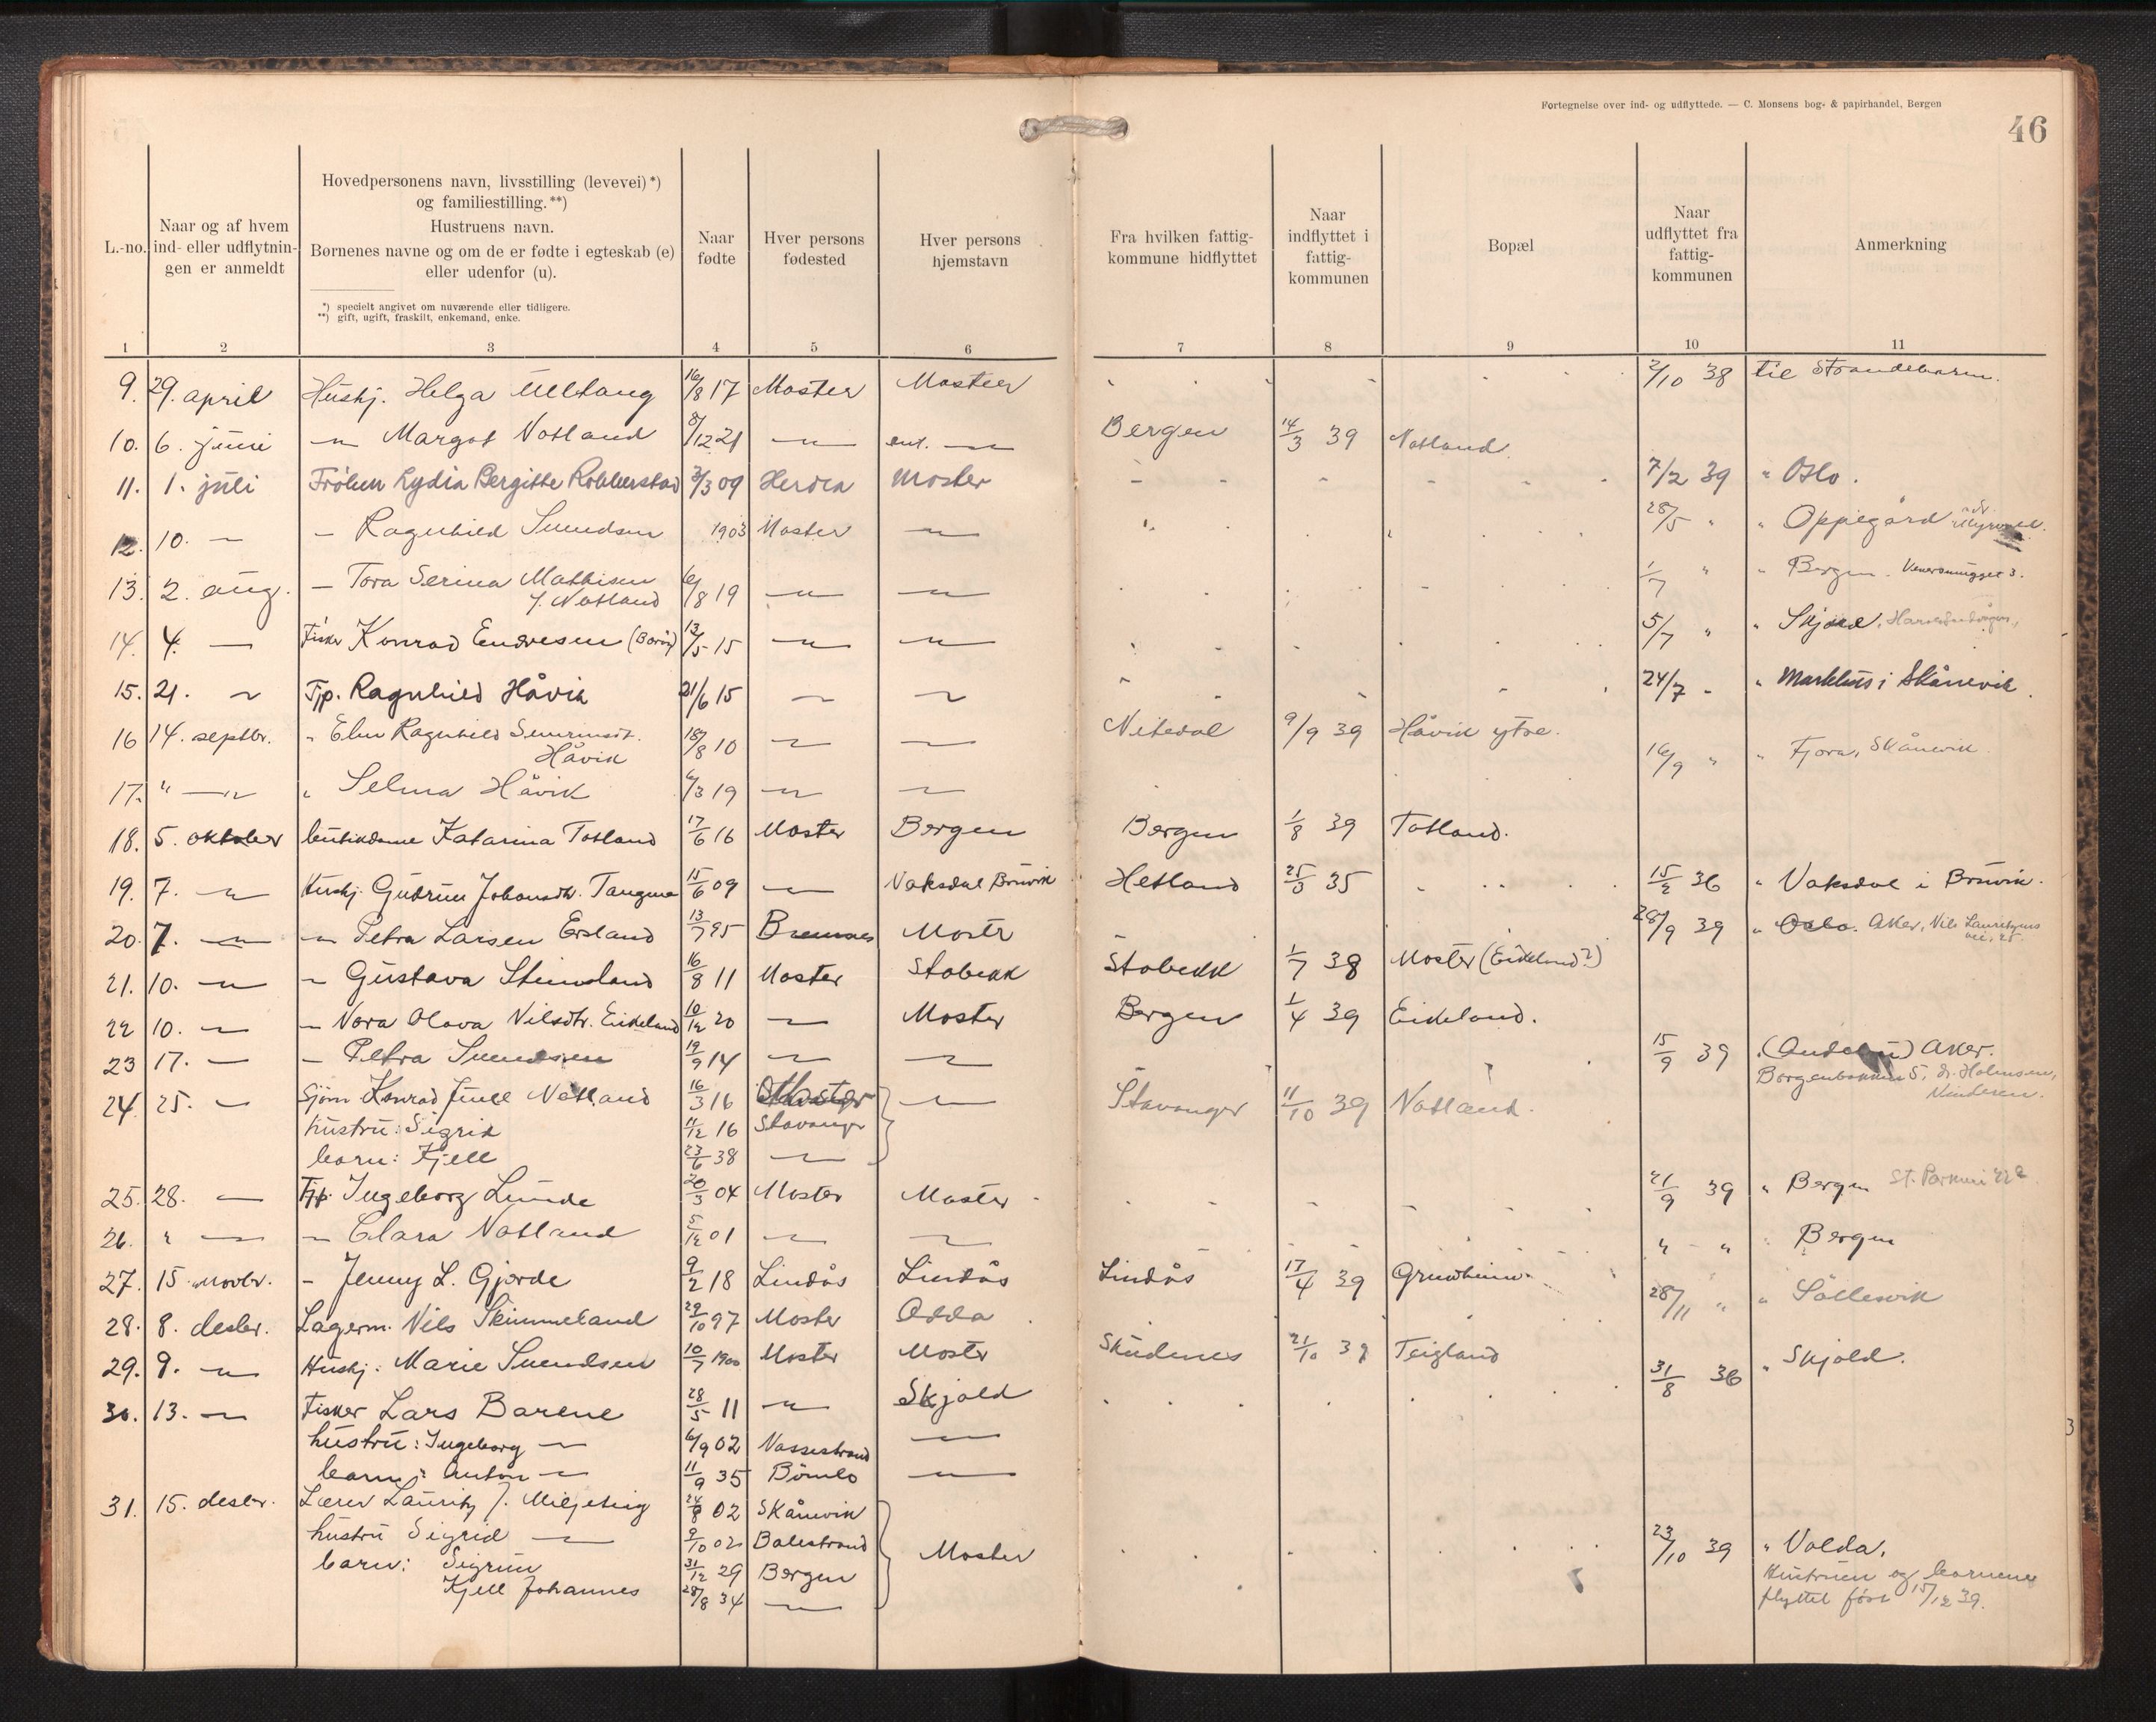 Fortegnelse over ind- og udflyttede. — C. Monsens bog- & papirhandel, Bergen
46
L.-no.
Naar og af hvem
ind- eller udflytnin-
gen er anmeldt
Hovedpersonens navn, livsstilling (levevei) *)
og familiestilling. **)
Hustruens navn.
Børnenes navne og om de er fødte i egteskab (e)
eller udenfor (u).
*) specielt angivet om nuværende eller tidligere.
**) gift, ugift, fraskilt, enkemand, enke.
Naar
fødte
Hver persons
fødested
Hver persons
hjemstavn
Fra hvilken fattig-
kommune hidflyttet
Naar
indflyttet i
fattig-
kommunen
Bopæl
Naar
udflyttet fra
fattig-
kommunen
Anmerkning
1 2 3 4 5 6 7 8 9 10 11
9. 29. april Hushj. Helga Ulltang 16/8 17 Moster Moster 2/10 38 til Strandebarm.
10. 6. juni — Margot Notland 8/12 21 — — Bergen 14/3 39 Notland
11. 1. juli Frøken Lydia Bergitte Robberstad 3/3 09 Herdla Moster 7/2 39 " Oslo.
12. 10. — — Ragnhild Svendsen 1903 Moster — 28/5 " " Oppegård
13. 2. aug. — Tora Serina Mathisen 6/8 19 — — 1/7 " " Bergen.
f. Notland
14. 4. — Fisker Konrad Endresen 13/5 15 — — 5/7 " " Skjold,
15. 21. — Tjp. Ragnhild Håvik 21/6 15 — — 24/7 " " Markhus i Skånevik.
16 14. septbr. " Elen Ragnhild 18/8 10 — — Nitedal 9/9 39 Håvik ytre.
Håvik
16/9 " " Fjora, Skånevik.
17. " — " Selma Håvik 6/3 19 — —
18. 5. oktober Katarina Totland 17/6 16 Moster Bergen Bergen 1/8 39 Totland.
19. 7. — Hushj. Gudrun Johansdtr. 15/6 09 — Vaksdal Bruvik Hetland 25/3 35 15/2 36 " Vaksdal i Bruvik.
20. 7. — — Petra Larsen Ersland 13/7 95 Bremnes Moster 28/9 39 " Oslo. Aker, Nils
21. 10. — — Gustava 16/8 11 Moster Stabekk Stabekk 1/7 38 Moster (Eikeland?)
22 10. — — Nora Olava Nilsdtr. Eikeland 10/12 20 — Moster Bergen 1/4 39 Eikeland.
23 17. — — Petra Svendsen 19/9 14 — — 15/9 39 Aker.
dr. Holmsen,
Vinderen.
24. 25. — Sjøm Konrad Notland 16/3 16 Moster — Stavanger 11/10 39 Notland.
hustru: Sigrid 11/12 16 Stavanger
barn: Kjell 23/6 38 —
25. 28. — Tjp. Ingeborg Lunde 20/3 04 Moster Moster 21/9 39 " Bergen
26. " — — Clara Notland 5/12 01 — — " - " " Bergen
27. 15. novbr. — Jenny L. Gjerde 9/2 18 Lindås Lindås Lindås 17/4 39 28/11 " "
28. 8. desbr. Lagerm. Nils Skimmeland 29/10 97 Moster Odda
29. 9. — Hushj. Marie Svendsen 10/7 1900 Moster Moster Skudenes 21/10 39 Teigland
30. 13. — Fisker Lars Barene 28/5 11 — Skjold 31/8 36 " Skjold.
hustru: Ingeborg — 6/9 02 —
barn: Anton — 11/9 35 Bømlo —
31. 15. desbr. Lærer Lauritz J. Miljeteig 24/8 02 Skånevik
hustru Sigrid — 9/10 02 Balestrand
barn: Sigrun 31/12 29 Bergen Moster 23/10 39 " Volda.
Kjell Johannes 28/8 34 —
Hustruen og barnene
flyttet først 15/12 39.